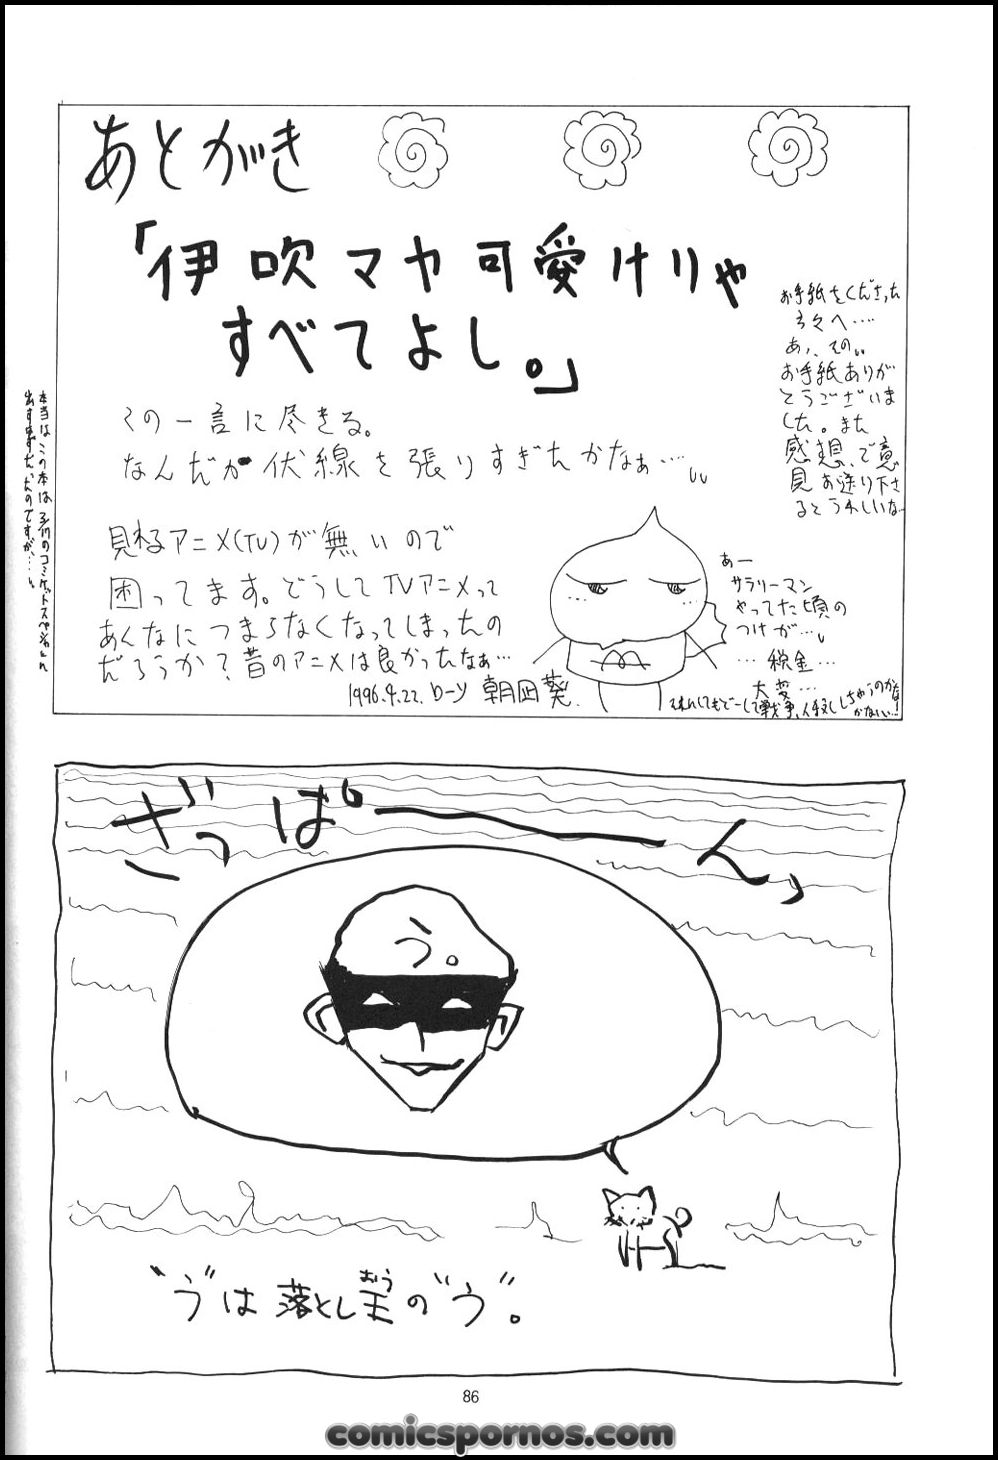 あとがき
「伊吹マヤ可愛けりゃ
すべてよし。」
この一言に尽きる。
なんだか伏線を張りすぎたかなぁ…
見れるアニメ(TV)が無いので
困ってます。どうしてTVアニメって
あんなにつまらなくなってしまったの
だろうか？昔のアニメは良かったなぁ…
1996.4.22. ローソン 朝凪葵
お手紙をくださった
方々へ…
あ、その
お手紙ありが
とうございま
した。また
感想、ご意
見お送り下さ
るとうれしいな
あー
サラリーマン
やってた頃の
つけが…
…税金…
大変…
本当はこの本は
のコミケットスペシャルで
出すはずだったのですが…
ざっぱーーん
う。
"う"は落とし王の"う"。
おう
86
comicspornos.com